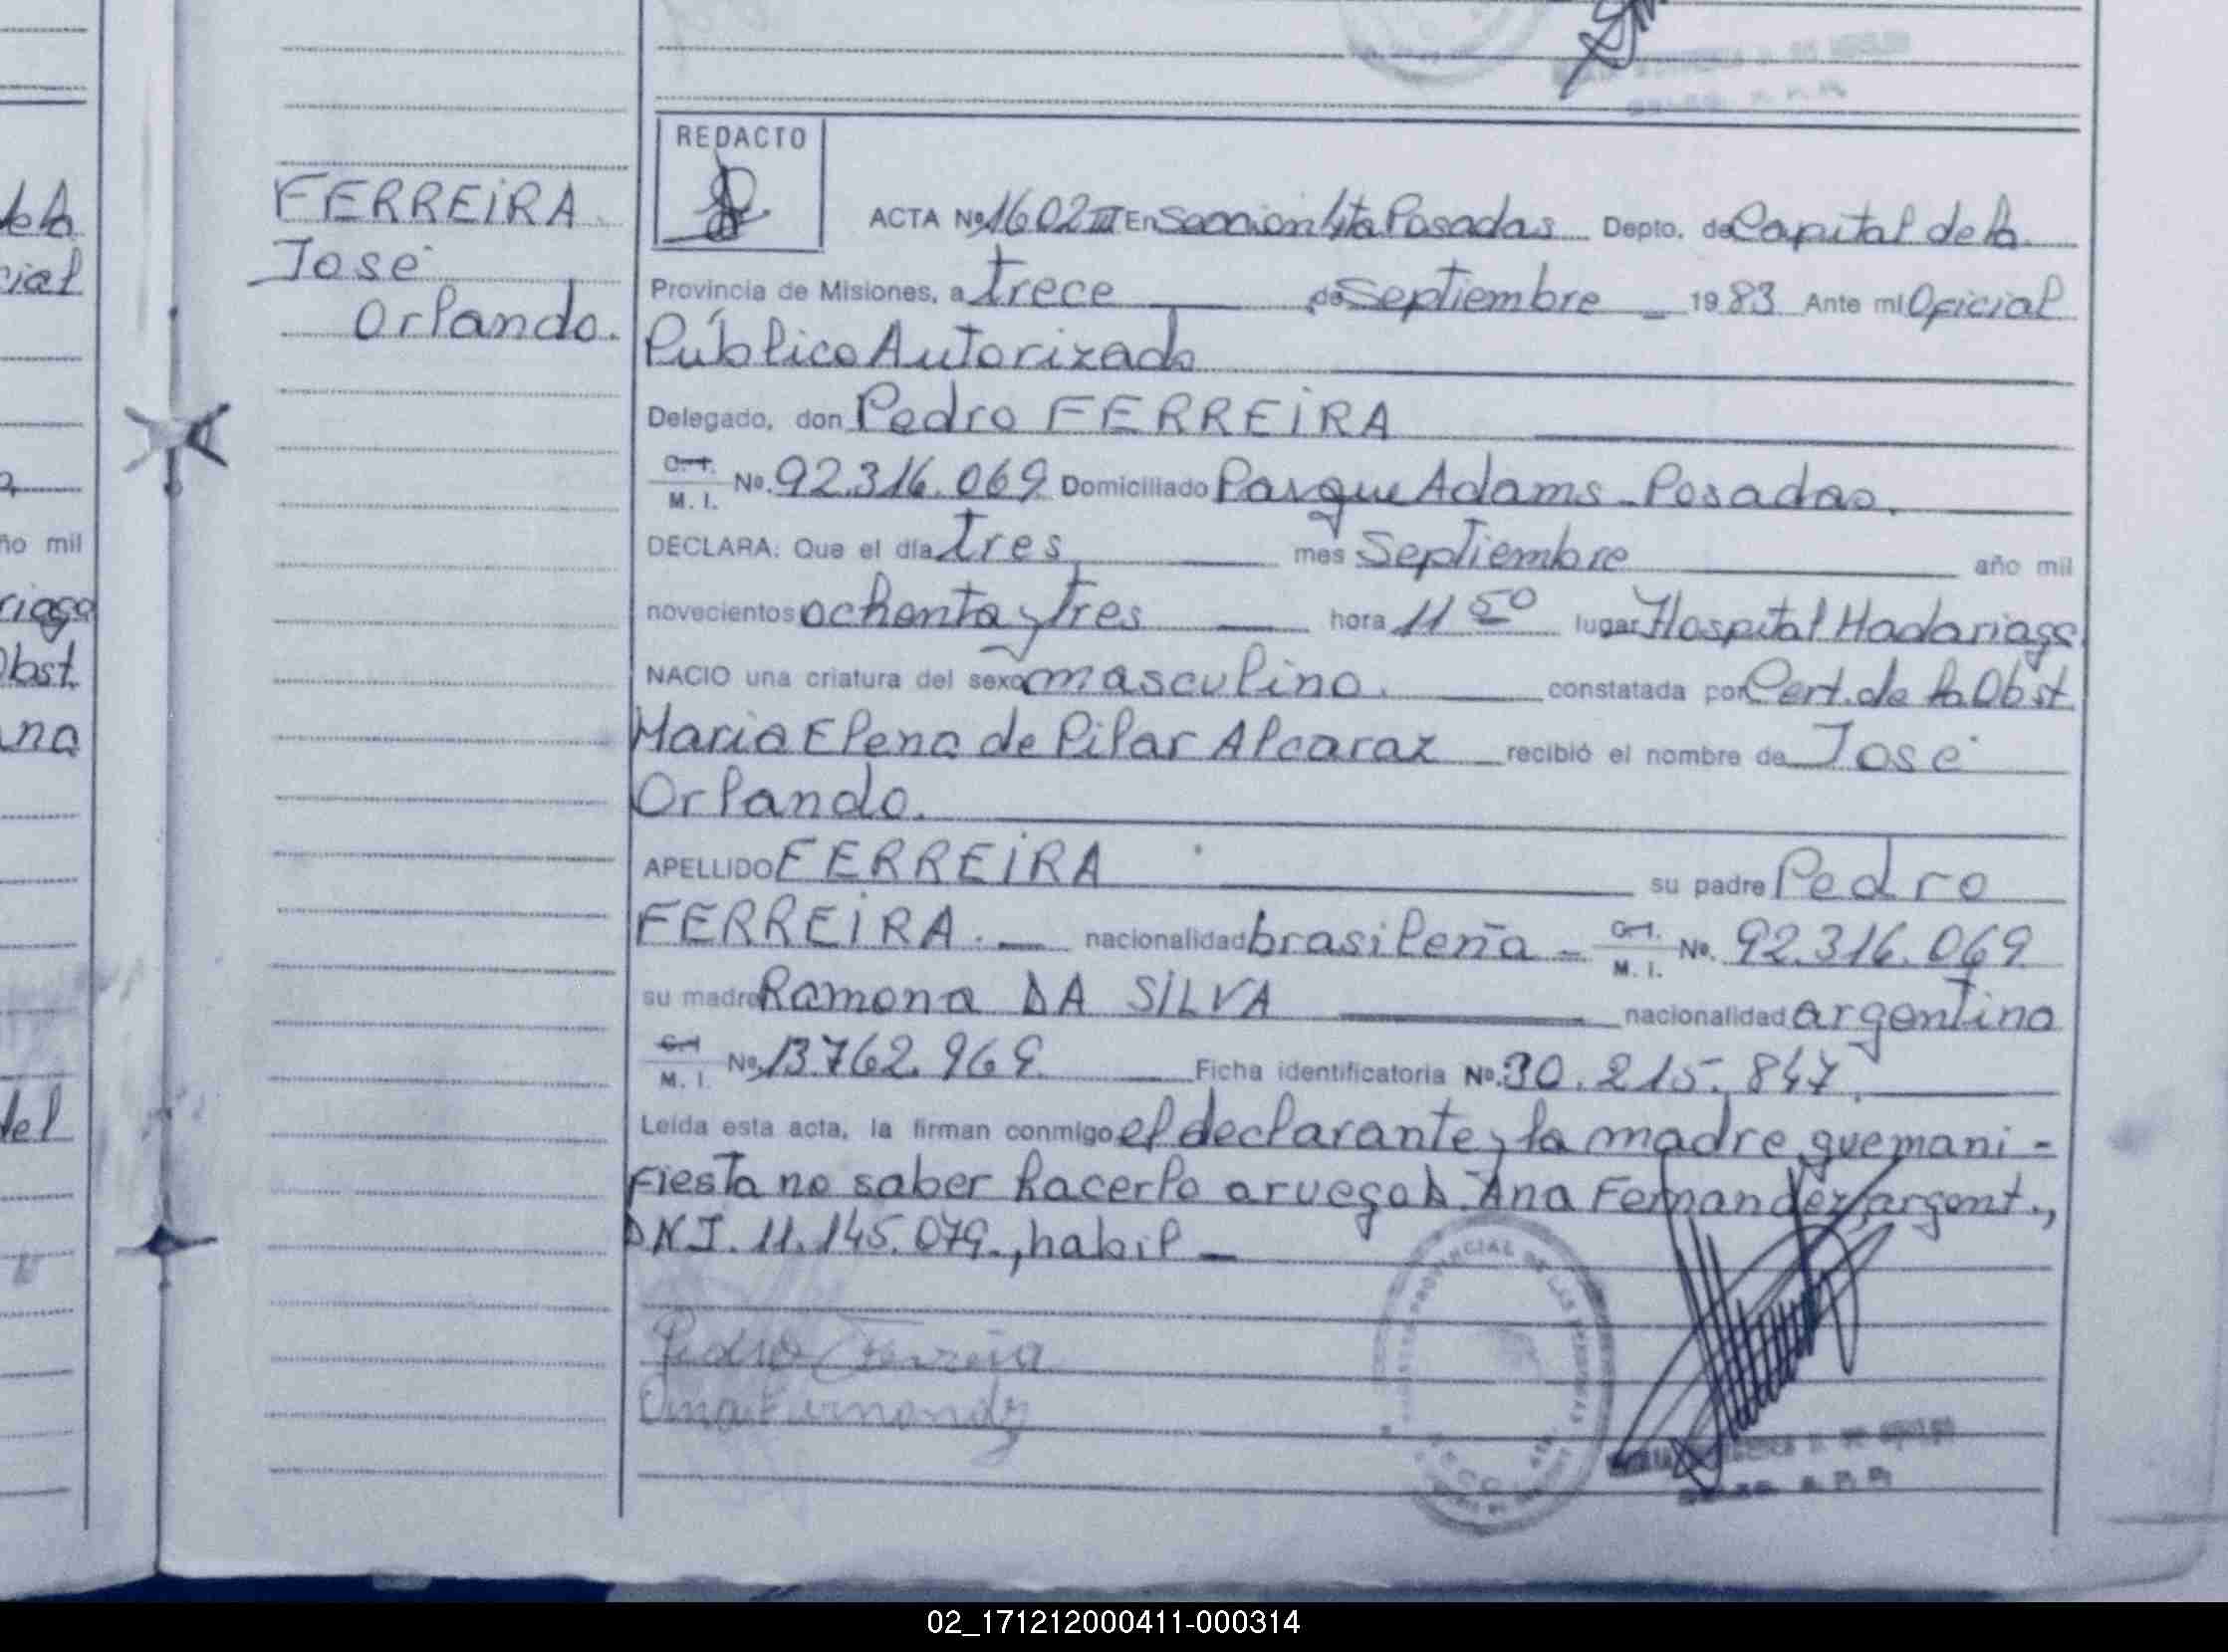 FERREIRA
José
Orlando.
REDACTO
ACTA Nº 1602 III En Sección 4ta Posadas Depto. de Capital de la
Provincia de Misiones, a trece de Septiembre 1983 Ante mi Oficial
Público Autorizado
Delegado, don Pedro FERREIRA
C.I. M.I. Nº. 92.316.069 Domiciliado Parque Adams - Posadas.
DECLARA: Que el día tres mes Septiembre año mil
novecientos ochenta y tres hora 11 50 lugar Hospital Madariaga
NACIO una criatura del sexo masculino. constatada por Cert. de la Obst
Maria Elena de Pilar Alcaraz recibió el nombre de José
Orlando.
APELLIDO FERREIRA su padre Pedro
FERREIRA. nacionalidad brasileña - C.I. M.I. Nº. 92.316.069
su madre Ramona DA SILVA nacionalidad argentina
C.I. M.I. Nº 13.762.969 Ficha identificatoria Nº. 30.215.847.
Leída esta acta, la firman conmigo el declarante y la madre que mani-
fiesta no saber hacerlo a ruego h. Ana Fernandez, argent.,
DNI. 11.145.079., habil
Pedro Ferreira
Ana Fernandez
PROVINCIAL DE LAS PERSONAS
ño mil
riaga
Obst.
na
del
02_171212000411-000314